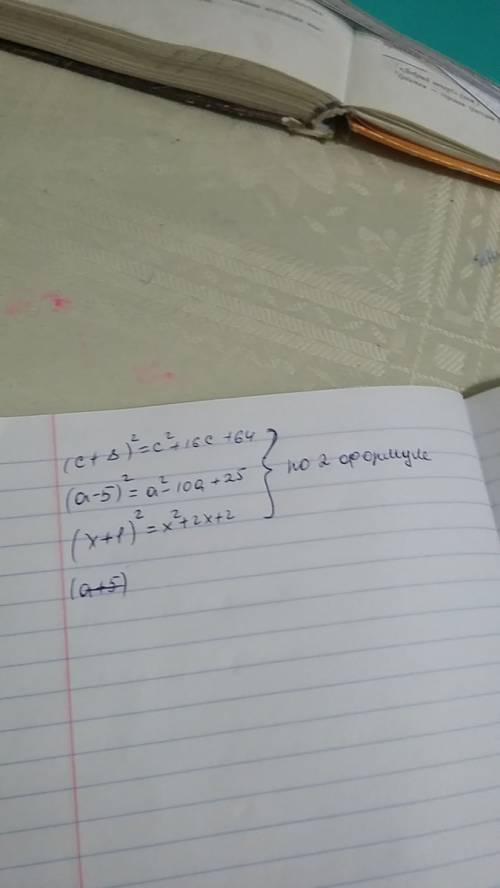 (c+8)²=c²+16c+64
(a-5)²=a²-10a+25
(x+1)²=x²+2x+2
по 2 формуле
(a+5)